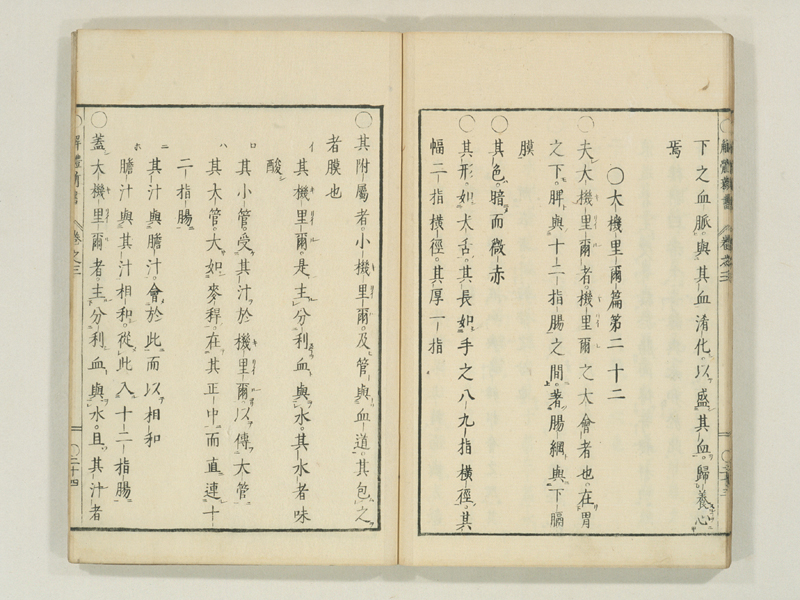 下之血脈與其血淆化以盛其血歸養心
焉
〇大機里爾篇第二十二
〇夫大機里爾者機里爾之大會者也在胃
之下脾與十二指腸之間著腸網與下膈
膜
〇其色暗而微赤
〇其形如犬舌其長如手之八九指橫徑其
幅二指橫徑其厚一指
〇其附屬者小機里爾及管與血道其包之
者膜也
イ其機里爾是主分利血與水其水者味
酸
ロ其小管受其汁於機里爾以傳大管
ハ其大管大如麥稈在其正中而直連十
二指腸
ニ其汁與膽汁會於此而以相和
ホ膽汁與其汁相和從此入十二指腸
〇蓋大機里爾者主分利血與水且其汁者
解體新書 卷之三 〇二十四